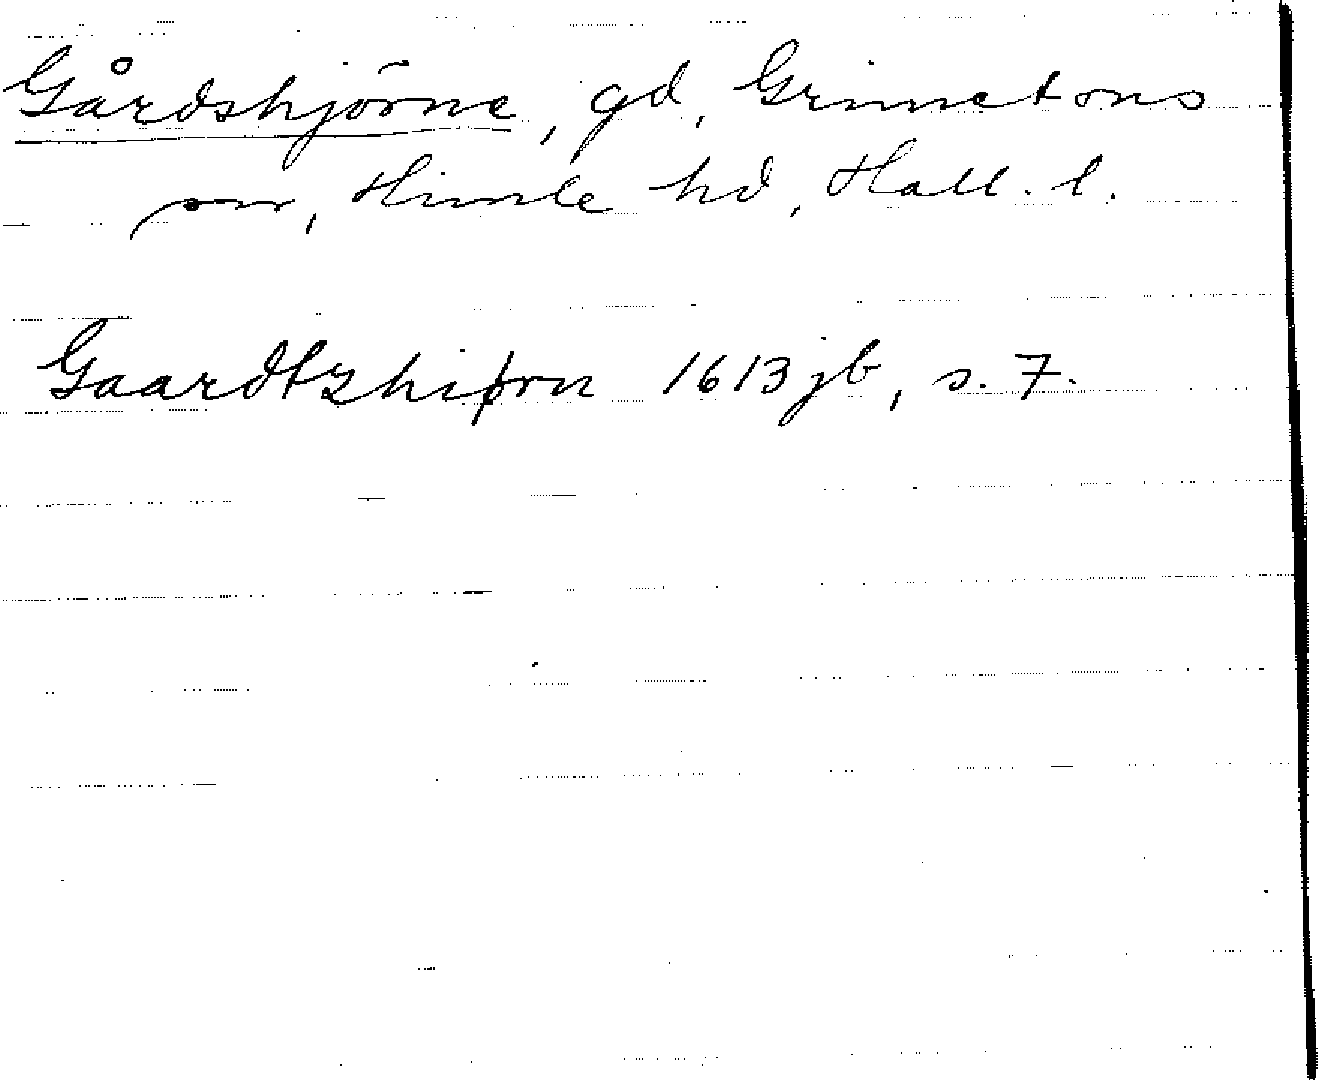 Gårdshjörne, gd, Grimetons
sn, Himle hd, Hall. l.
Gaardtzhiørn 1613 jb, s. 7.